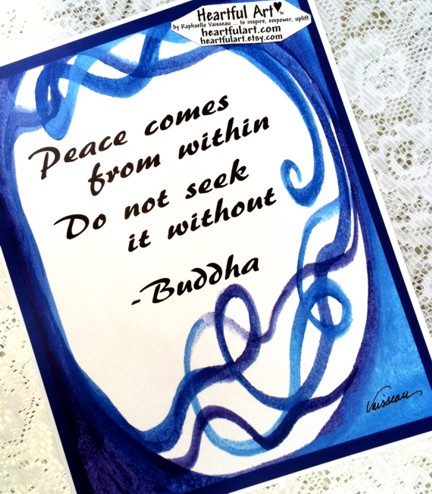 Heartful Art♥
by Raphaella Vaisseau ... to inspire, empower, uplift
heartfulart.com
heartfulart.etsy.com
Peace comes
from within
Do not seek
it without
-Buddha
Vaisseau